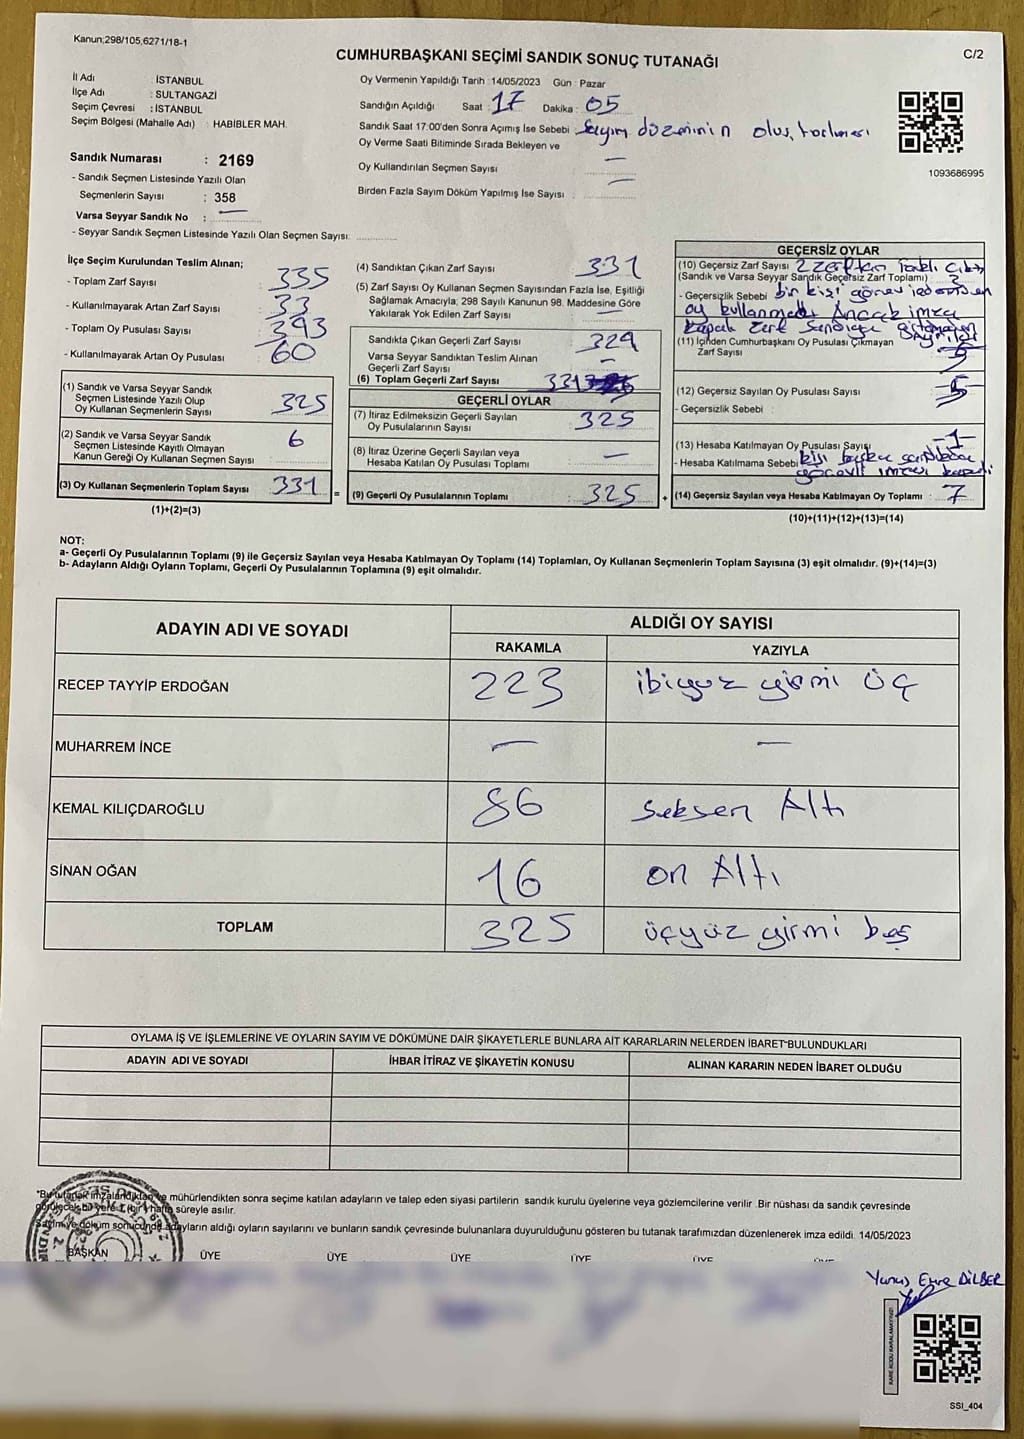 Kanun;298/105,6271/18-1
CUMHURBAŞKANI SEÇİMİ SANDIK SONUÇ TUTANAĞI
C/2
İl Adı : İSTANBUL
İlçe Adı : SULTANGAZİ
Seçim Çevresi : İSTANBUL
Seçim Bölgesi (Mahalle Adı) : HABİBLER MAH.
Sandık Numarası : 2169
- Sandık Seçmen Listesinde Yazılı Olan
Seçmenlerin Sayısı : 358
Varsa Seyyar Sandık No : —
- Seyyar Sandık Seçmen Listesinde Yazılı Olan Seçmen Sayısı:
Oy Vermenin Yapıldığı Tarih :14/05/2023 Gün : Pazar
Sandığın Açıldığı Saat : 17 Dakika : 05
Sandık Saat 17:00'den Sonra Açımış İse Sebebi : Sayım düzeninin oluşturulması
Oy Verme Saati Bitiminde Sırada Bekleyen ve
Oy Kullandırılan Seçmen Sayısı : —
Birden Fazla Sayım Döküm Yapılmış İse Sayısı : —
1093686995
İlçe Seçim Kurulundan Teslim Alınan;
- Toplam Zarf Sayısı : 335
- Kullanılmayarak Artan Zarf Sayısı : 33
- Toplam Oy Pusulası Sayısı : 393
- Kullanılmayarak Artan Oy Pusulası : 60
(1) Sandık ve Varsa Seyyar Sandık
Seçmen Listesinde Yazılı Olup
Oy Kullanan Seçmenlerin Sayısı : 325
(2) Sandık ve Varsa Seyyar Sandık
Seçmen Listesinde Kayıtlı Olmayan
Kanun Gereği Oy Kullanan Seçmen Sayısı 6
(3) Oy Kullanan Seçmenlerin Toplam Sayısı 331 =
(1)+(2)=(3)
(4) Sandıktan Çıkan Zarf Sayısı : 331
(5) Zarf Sayısı Oy Kullanan Seçmen Sayısından Fazla İse, Eşitliği
Sağlamak Amacıyla; 298 Sayılı Kanunun 98. Maddesine Göre
Yakılarak Yok Edilen Zarf Sayısı : —
Sandıkta Çıkan Geçerli Zarf Sayısı : 329
Varsa Seyyar Sandıktan Teslim Alınan
Geçerli Zarf Sayısı : —
(6) Toplam Geçerli Zarf Sayısı 331
GEÇERLİ OYLAR
(7) İtiraz Edilmeksizin Geçerli Sayılan
Oy Pusulalarının Sayısı : 325
(8) İtiraz Üzerine Geçerli Sayılan veya
Hesaba Katılan Oy Pusulası Toplamı : —
(9) Geçerli Oy Pusulalarının Toplamı : 325 +
GEÇERSİZ OYLAR
(10) Geçersiz Zarf Sayısı 2 zarftan farklı çıktı
(Sandık ve Varsa Seyyar Sandık Geçersiz Zarf Toplamı)
- Geçersizlik Sebebi bir kişi görev
oy kullanmadı Ancak imza
(11) İçinden Cumhurbaşkanı Oy Pusulası Çıkmayan
Zarf Sayısı
(12) Geçersiz Sayılan Oy Pusulası Sayısı 5
- Geçersizlik Sebebi :
(13) Hesaba Katılmayan Oy Pusulası Sayısı -1-
- Hesaba Katılmama Sebebi kişi başka sandıkta
görevli imza
(14) Geçersiz Sayılan veya Hesaba Katılmayan Oy Toplamı : 7
(10)+(11)+(12)+(13)=(14)
NOT:
a- Geçerli Oy Pusulalarının Toplamı (9) ile Geçersiz Sayılan veya Hesaba Katılmayan Oy Toplamı (14) Toplamları, Oy Kullanan Seçmenlerin Toplam Sayısına (3) eşit olmalıdır. (9)+(14)=(3)
b- Adayların Aldığı Oyların Toplamı, Geçerli Oy Pusulalarının Toplamına (9) eşit olmalıdır.
ADAYIN ADI VE SOYADI
ALDIĞI OY SAYISI
RAKAMLA YAZIYLA
RECEP TAYYİP ERDOĞAN 223 ikiyüz yirmi üç
MUHARREM İNCE — —
KEMAL KILIÇDAROĞLU 86 Seksen Altı
SİNAN OĞAN 16 on Altı
TOPLAM 325 üçyüz yirmi beş
OYLAMA İŞ VE İŞLEMLERİNE VE OYLARIN SAYIM VE DÖKÜMÜNE DAİR ŞİKAYETLERLE BUNLARA AİT KARARLARIN NELERDEN İBARET BULUNDUKLARI
ADAYIN ADI VE SOYADI İHBAR İTİRAZ VE ŞİKAYETİN KONUSU ALINAN KARARIN NEDEN İBARET OLDUĞU
"Bu tutanak imzalandıktan ve mühürlendikten sonra seçime katılan adayların ve talep eden siyasi partilerin sandık kurulu üyelerine veya gözlemcilerine verilir. Bir nüshası da sandık çevresinde
görülecek bir yere 1 (bir) hafta süreyle asılır.
Sayım ve döküm sonucunda adayların aldığı oyların sayılarını ve bunların sandık çevresinde bulunanlara duyurulduğunu gösteren bu tutanak tarafımızdan düzenlenerek imza edildi. 14/05/2023
BAŞKAN ÜYE ÜYE ÜYE ÜYE ÜYE ÜYE
Yunus Emre DİLBER
KARE KODU KARALAMAYINIZ!
SSI_404